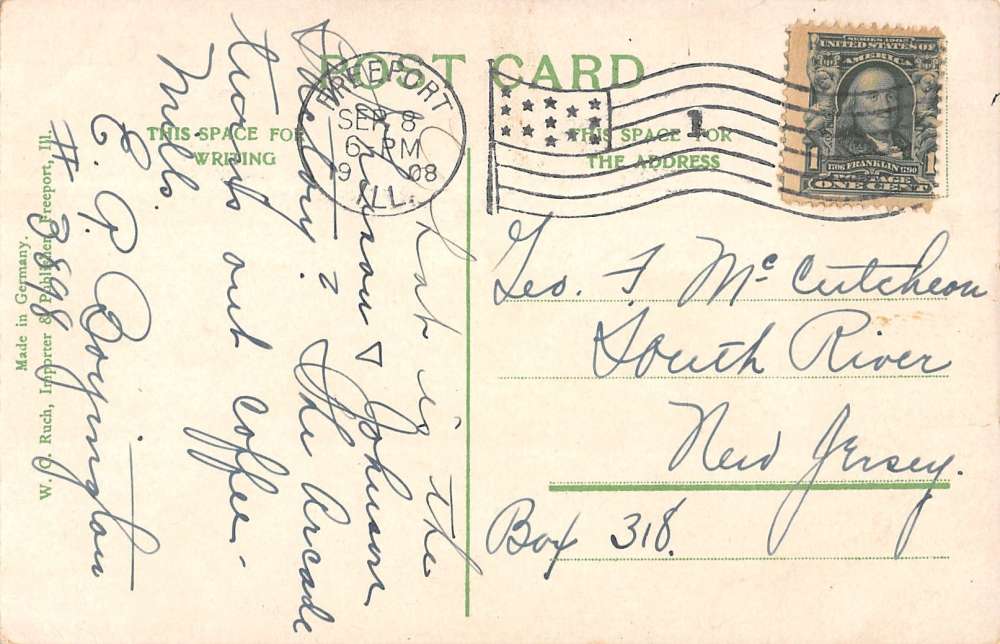 POST CARD
THIS SPACE FOR
WRITING
THIS SPACE FOR
THE ADDRESS
FREEPORT
SEP 8
6-PM
1908
ILL.
1
SERIES 1902
UNITED STATES OF
AMERICA
1706 FRANKLIN 1790
POSTAGE
1 ONE CENT 1
What is the
Johnson & Johnson
Factory? The Arcade
turns out coffee
mills.
E. P. Boyington
# 3898
Geo. F. McCutcheon
South River
New Jersey.
Box 318.
Made in Germany.
W. O. Ruch, Importer & Publisher, Freeport, Ill.